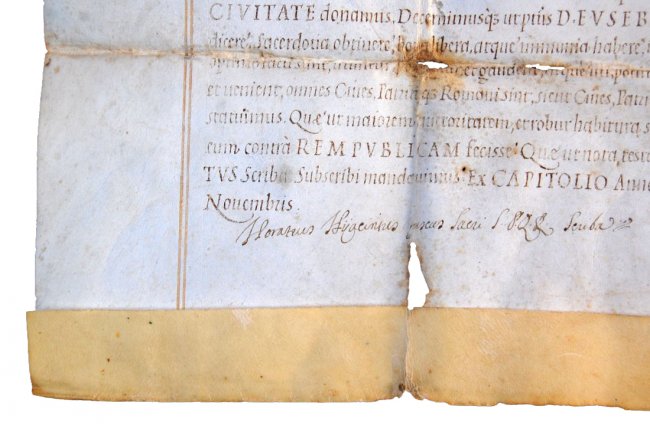 CIVITATE donamus. Decernimusq́ ut pñs D. EVSEB
dicere, Sacerdotia obtinere, bona libera, atque immunia habere,
et gaudere, atque
et venient, omnes Cives, Patritiosq́ Romani sint, sicut Cives, Patri
statuimus. Quæ ut maiorem auctoritatem, et robur habitura s
eum contrà REMPVBLICAM fecisse. Quæ ut nota, test
TVS Scriba Subscribi mandavimus. Ex CAPITOLIO Anno
Novembris.
Horatius Hyacinthus Sacri S.P.Q.R. Scriba